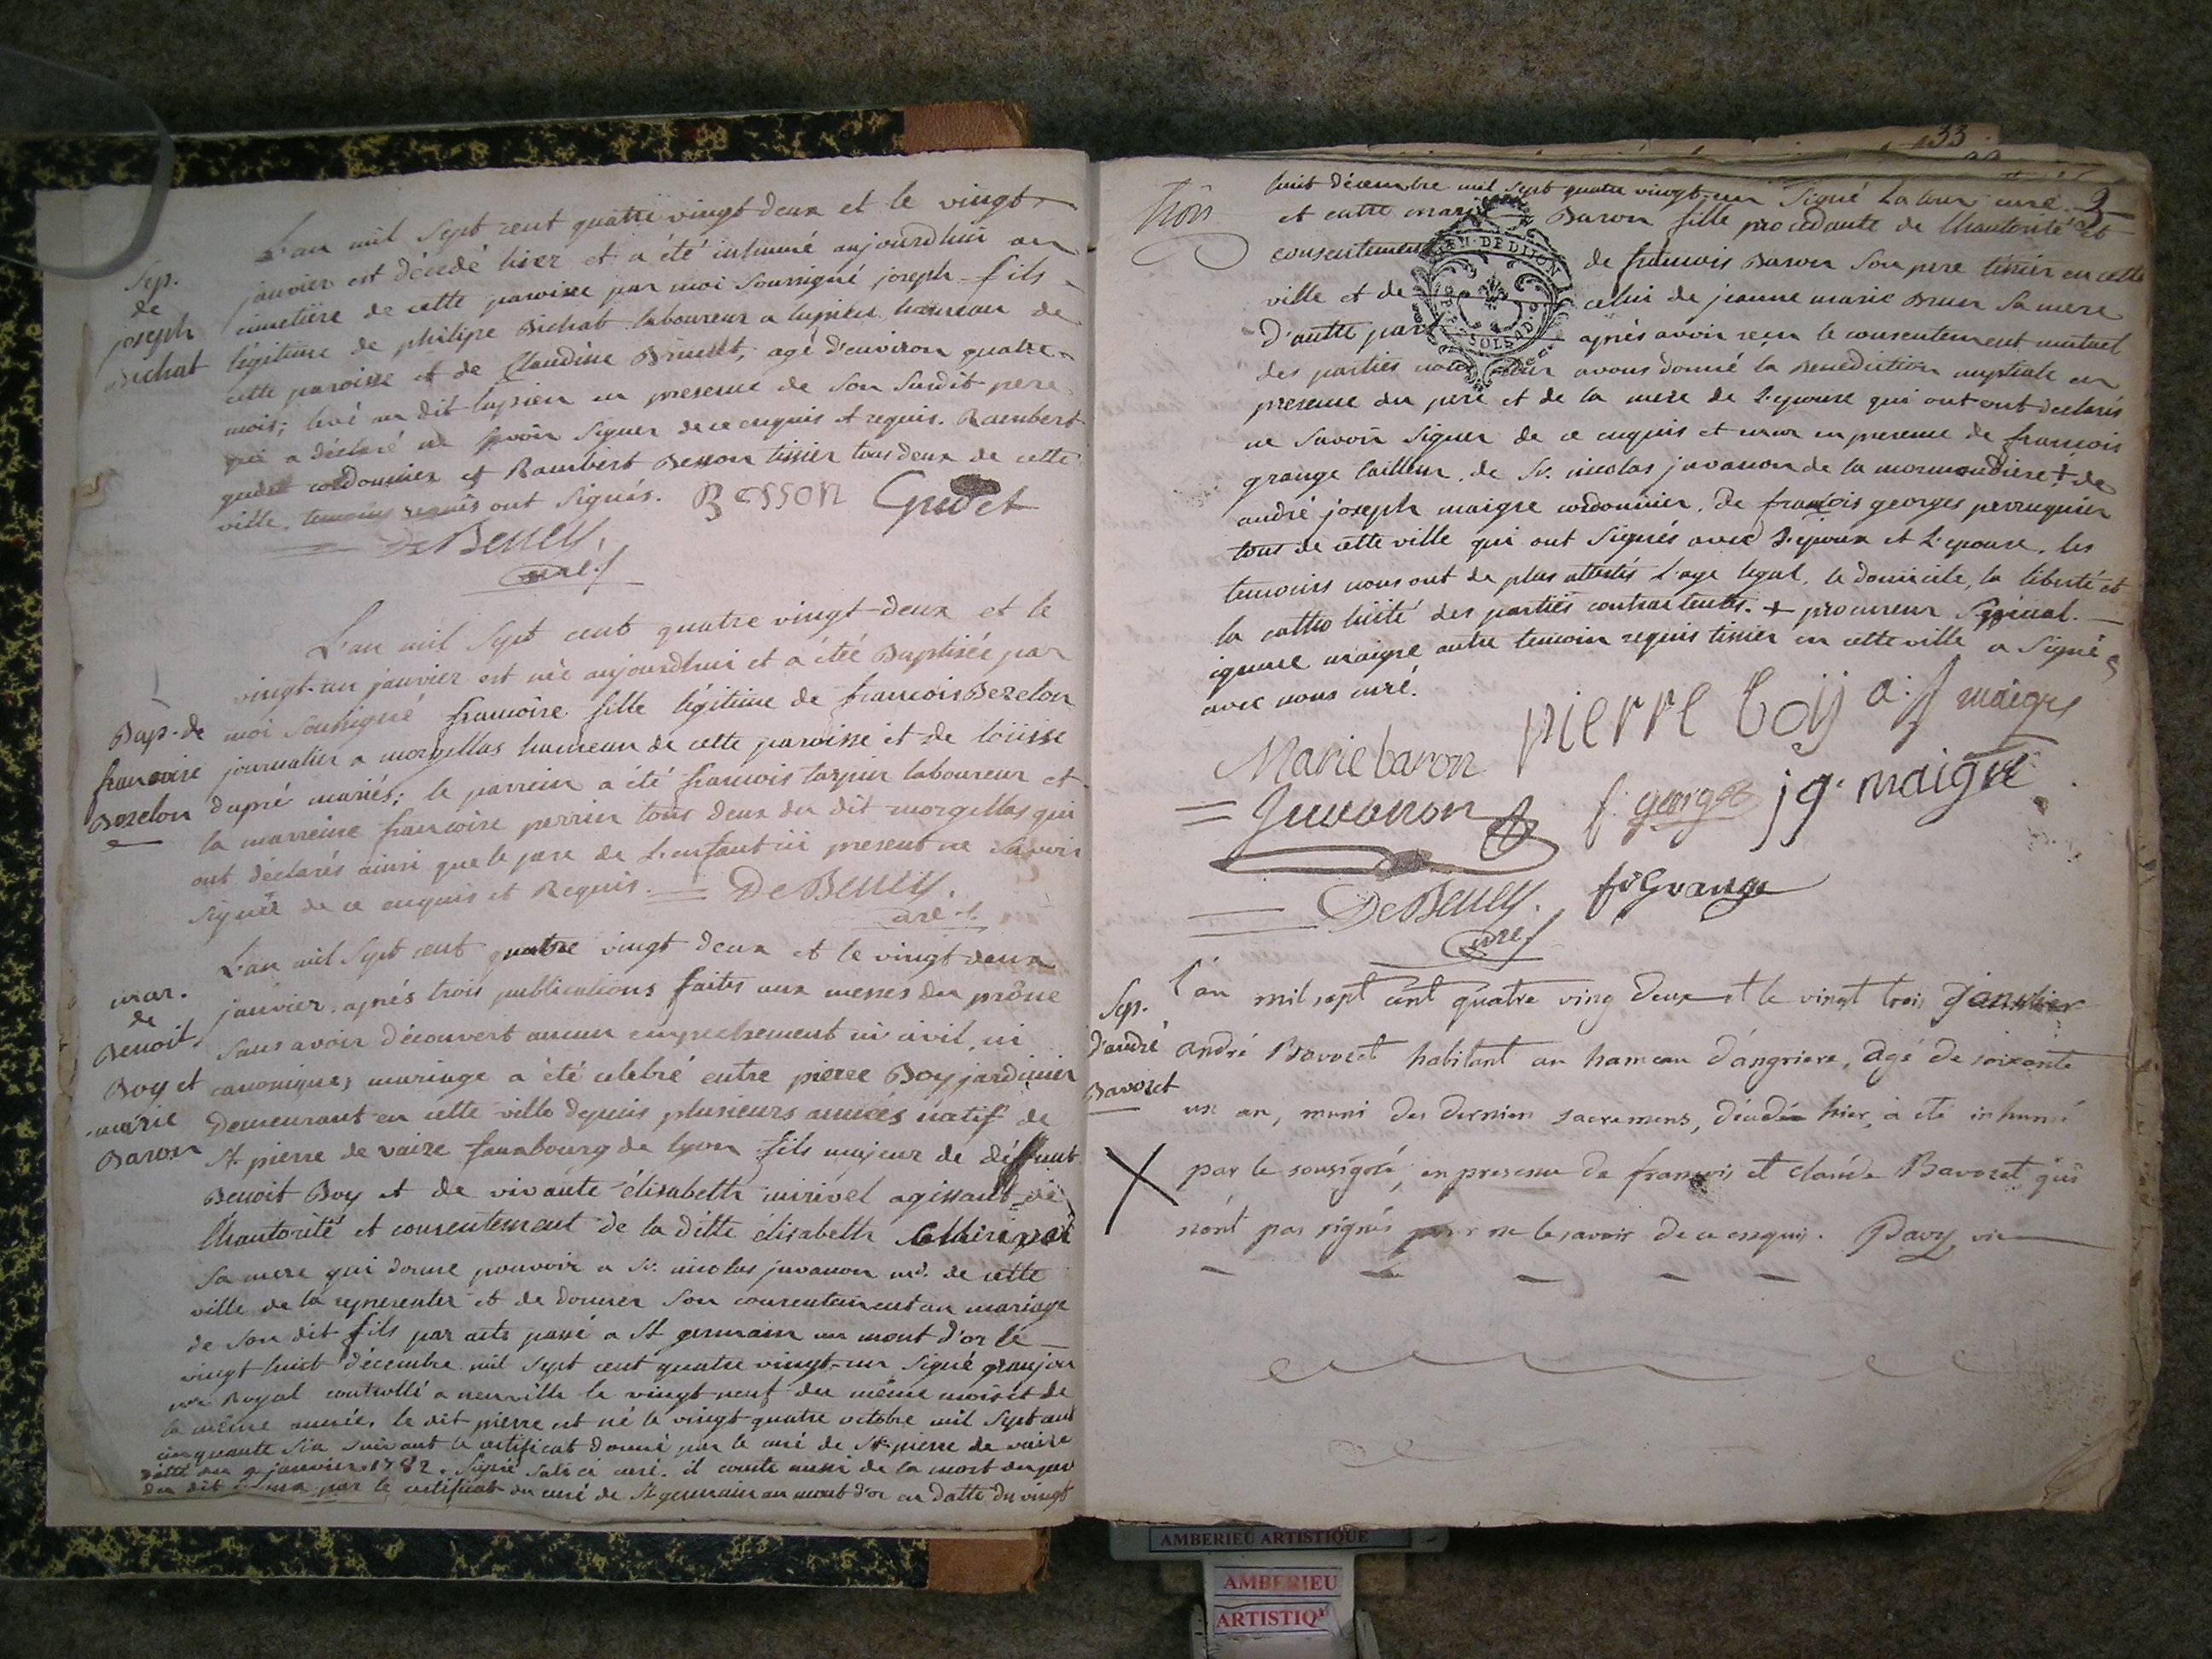 L'an mil Sept cent quatre vingt deux et le vingt
Sep.
de
joseph
Bichat
janvier est décedé hier et a été inhumé aujourdhui au
cimetière de cette paroisse par moi Soussigné joseph fils
légitime de philipe Bichat laboureur a hameau de
cette paroisse et de Claudine agé d'environ quatre
mois; levé au dit en presence de Son Susdit pere
qui a déclaré ne Savoir Signer de ce enquis et requis. Rambert
gudet cordonnier et Rambert Besson tissier tous deux de cette
ville temoins requis ont Signés. Besson Gudet
De Beuey
curé
L'an mil Sept cent quatre vingt deux et le
Bap. de
francoise
Bozelon
vingt-un janvier est née aujourdhui et a été Baptisée par
moi Soussigné francoise fille légitime de francois Bezelon
journalier a morgellas hameau de cette paroisse et de loüise
dupré mariés; le parrein a été francois tarpin laboureur et
la marreine francoise perrin tous deux du dit morgellas qui
ont déclarés ainsi que le pere de L'enfant ici present ne Savoir
Signer de ce enquis et Requis. De Beuey
curé
mar.
de
Benoit
Boy et
marie
Baron
L'an mil Sept cent quatre vingt deux et le vingt deux
janvier, après trois publications faites aux messes du prône
Sans avoir découvert aucun empechement ni civil, ni
canonique, mariage a été celebré entre pierre Boy jardinier
Demeurant en cette ville depuis plusieurs années natif de
St. pierre de vaize fauxbourg de lyon fils majeur de deffunt
Benoit Boy et de vivante élisabeth mirivel agissant de
l'hautorité et consentement de la ditte élisabeth
Sa mere qui donne pouvoir a Sr. nicolas juvanon md. de cette
ville de la representer et de donner Son consentement au mariage
de Son dit fils par acte passé a St germain au mont d'or le
vingt huit décembre mil Sept cent quatre vingt-un Signé granjon
nore Royal controllé a neuville le vingt neuf du même mois et de
la même année. le dit pierre est né le vingt-quatre octobre mil Sept cent
cinquante Six Suivant le certificat donné par le curé de St. pierre de vaize
datté du 9 janvier 1782. Signé curé. il conste aussi de la mort du pere
du dit époux par le certificat du curé de St. germain au mont d'or en datte du vingt
33
3
trois
huit décembre mil Sept quatre vingt-un Signé La tour curé.
et entre marie Baron fille procedante de l'hautorité et
consentement de francois Baron Son pere tissier en cette
ville et de celui de jeanne marie Brun Sa mere
d'autre part après avoir reçu le consentement mutuel
des parties nous curé avons donné la Benediction nuptiale en
presence du pere et de la mere de L'epouse qui ont ont declarés
ne Savoir Signer de ce enquis et encor en presence de francois
grange tailleur, de Sr. nicolas juvanon de la mormondiere + de
andré joseph maigre cordonnier, de francois georges perruquier
tous de cette ville qui ont Signés avec L'epoux et L'epouse. les
temoins nous ont de plus attestés L'age legal, le domicile, la liberté et
la catholicité des parties contractentes. + procureur
ignace maigre autre temoin requis tissier en cette ville a Signé
avec nous curé.
Marie baron pierre boy a. j maigre
Juvanon f. george jg. maigre
De Beuey. fs Grange
curé
GEN. DE DIJON
SOLS
Sep.
d'andré
Bavozet
l'an mil sept cent quatre ving deux et le vingt trois janvier
andré Bavozet habitant au hameau d'angriere, agé de soixante
un an, muni des derniers sacremens, décédé hier, a été inhumé
par le sousigné, en presence de francois et claude Bavozet qui
n'ont pas signés pour ne le savoir de ce enquis. Pavy vic
AMBERIEU ARTISTIQUE
AMBERIEU
ARTISTIQ